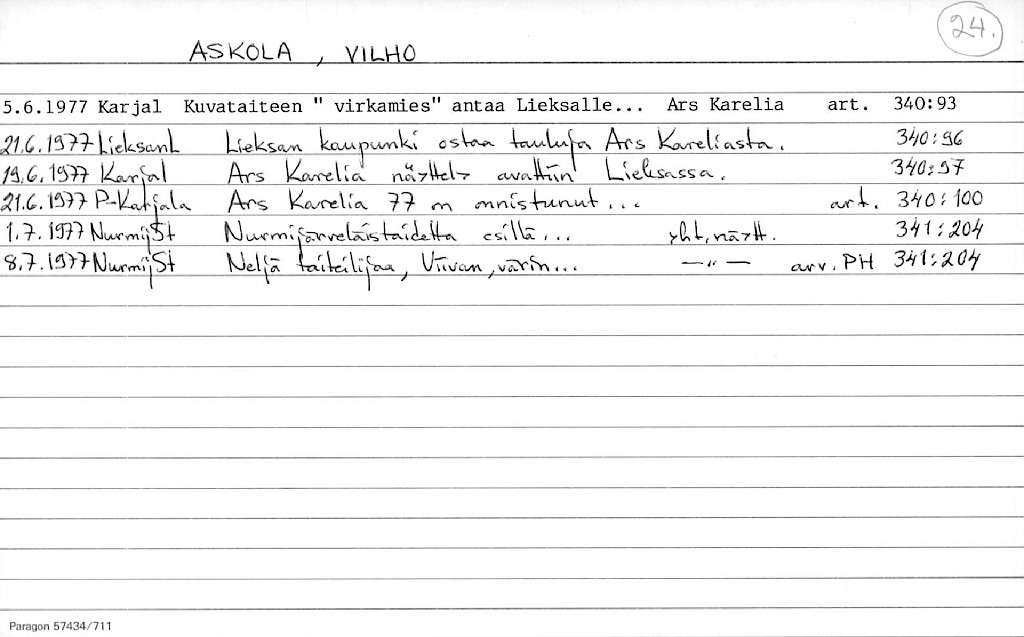 24.
ASKOLA, VILHO
5.6.1977 Karjal Kuvataiteen " virkamies" antaa Lieksalle... Ars Karelia art. 340:93
21.6.1977 LieksanL Lieksan kaupunki ostaa tauluja Ars Kareliasta. 340:96
19.6.1977 Karjal Ars Karelia näyttely avattiin Lieksassa. 340:97
21.6.1977 P-Karjala Ars Karelia 77 on onnistunut... art. 340:100
1.7.1977 NurmijSt Nurmijärveläistaidetta esillä... yht.näytt. 341:204
8.7.1977 NurmijSt Neljä taiteilijaa, Viivan, värin... —"— arv. PH 341:204
Paragon 57434/711